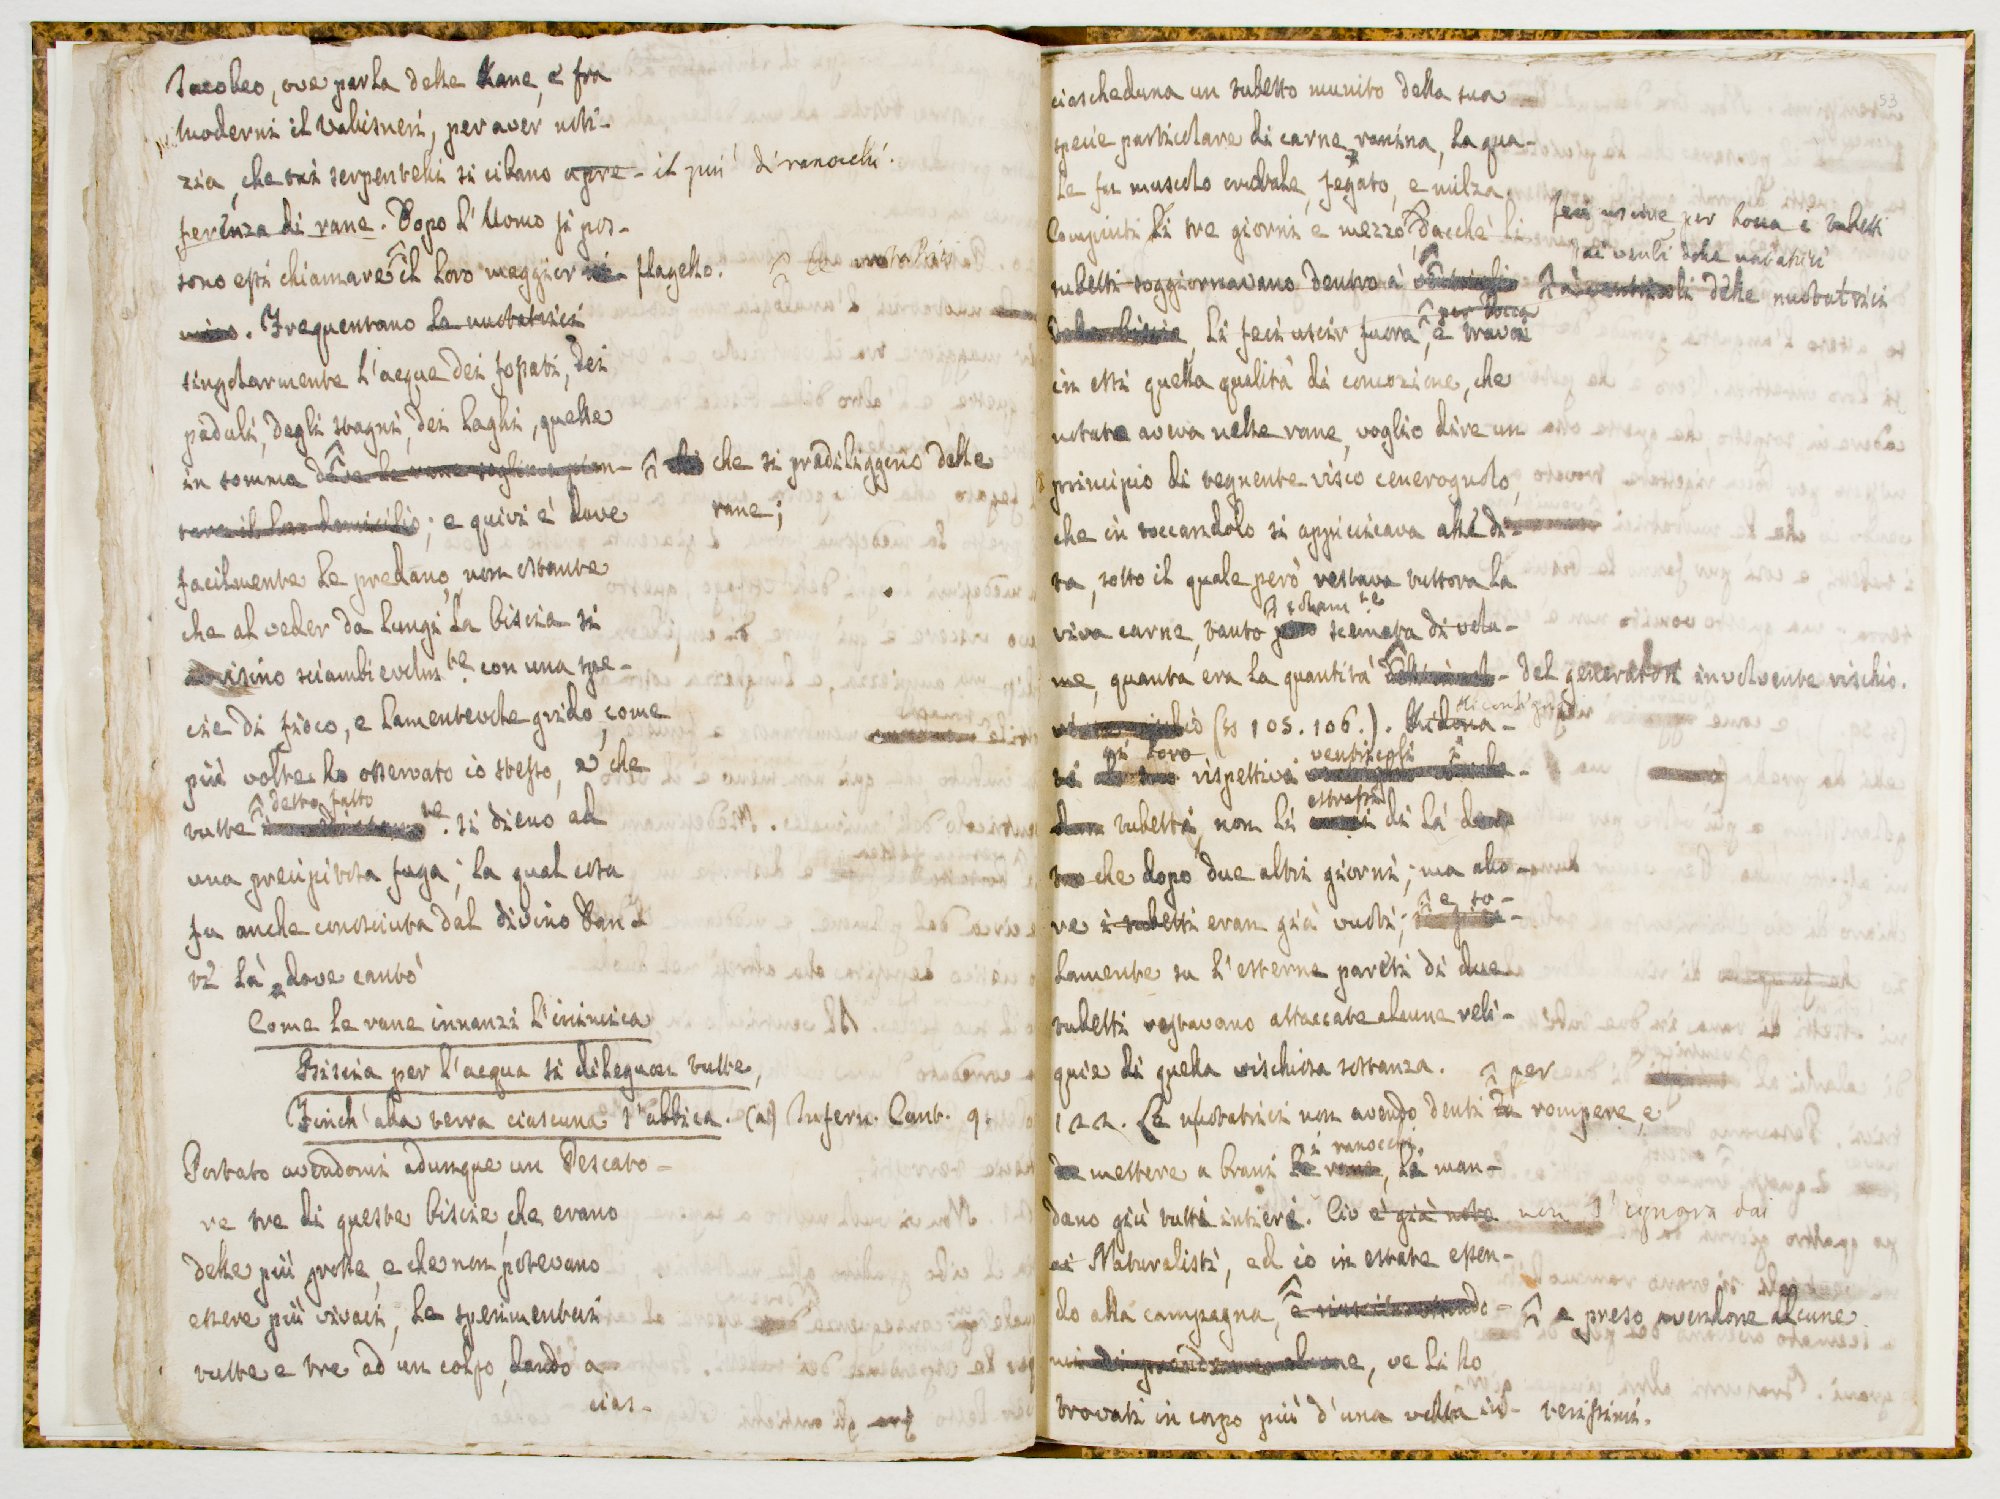 Jacobeo, ove parla delle Rane, e fra
moderni il Valisneri, per aver noti-
zia, che tai serpentelli si cibano a pre- il più di ranocchi.
ferenza di rane. Dopo l'Uomo si pos-
sono essi chiamare il loro maggior flagello.
. Frequentano le nuotatrici
singolarmente l'acque dei fossati, dei
paduli, degli stagni, dei laghi, quelle
in somma dove le rane sogliono pian- che si prediliggono dalle
tare il loro domicilio; e quivi è dove rane;
facilmente le predano, non ostante
che al veder da lungi la biscia si
avvisino scambievolmte. con una spe-
cie di fioco, e lamentevole grido, come
più volte ho osservato io stesso, e che
detto fatto
tutte si dieno ad
una precipitosa fuga; la qual cosa
fu anche conosciuta dal divino Dan-
te là, dove cantò
Come le rane innanzi l'inimica
Biscia per l'acqua si dileguan tutte,
Finch' alla terra ciascuna s'abbica. (a) Infern. Cant. 9.
Portato avendomi adunque un Pescato-
re tre di queste biscie, che erano
delle più grosse, e che non potevano
essere più vivaci, le sperimentai
tutte e tre ad un colpo, dando a
cias-
53
ciascheduna un tubetto munito della sua
specie particolare di carne ranina, la qua-
le fu muscolo crurale, fegato, e milza.
Compiuti li tre giorni e mezzo dacchè li feci uscire per bocca i tubetti
ai ventricoli delle natatrici
tubetti soggiornavano dentro a' ventricoli delle nuotatrici
per bocca
delle biscie, li feci uscir fuora, e trovai
in essi quella qualità di concozione, che
notata aveva nelle rane, voglio dire un
principio di tegnente visco cenerognolo,
che in toccandolo si appiccicava alle di-
ta, sotto il quale però restava tuttora la
viva carne, tanto scemata di volu-
me, quanta era la quantità del generatosi involvente vischio.
(§§ 105. 106.). Ridona-
ai loro ventricoli
ti rispettivi
estrassi
tubetti, non li di là
che dopo due altri giorni; ma allo-
e so-
re i tubetti eran già vuoti;
lamente su l'esterne pareti di due
tubetti restavano attaccate alcune reli-
quie di quella vischiosa sostanza. per
122. Le nuotatrici non avendo denti da rompere, e
i ranocchi,
da mettere a brani le rane, le man-
dano giù tutti intieri. Ciò è già noto non s'ignora dai
ai Naturalisti, ed io in estate essen-
do alla campagna, e preso avendone alcune
, ve li ho
trovati in corpo più d'una volta in- terissimi.